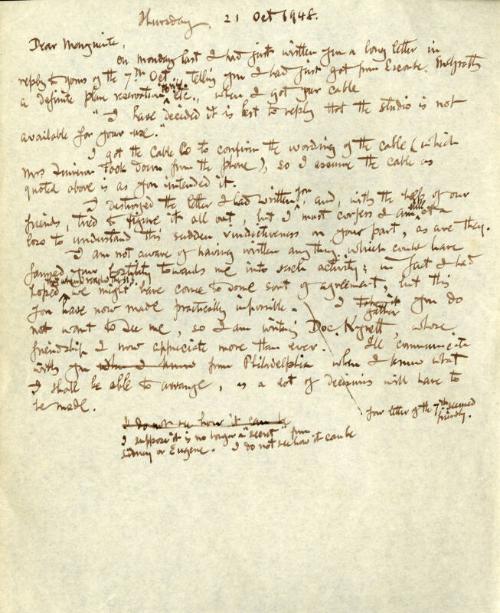 Thursday 21 Oct 1948.
Dear Marguerite,
On Monday last I had just written you a long letter in
reply to yours of the 7th Oct., telling you I had just got from
a definite plane reservation, etc., when I got your cable
"I have decided it is best to reply that the studio is not
available for your use."
I got the Cable Co to confirm the wording of the cable (which
Mrs took down from the phone), so I assume the cable as
quoted above is as you intended it.
I destroyed the letter I had written you, and, with the help of our
friends, tried to figure it all out, but I must confess I am still at a
loss to understand this sudden vindictiveness on your part, as are they.
I am not aware of having written anything which could have
your hostility towards me into such activity; in fact I had
hoped we might have come to some sort of agreement, but this
you have now made practically impossible. I you do
not want to see me, so I am writing Doc. Kynett, whose
friendship I now appreciate more than ever. I'll communicate
with you when I know from Philadelphia when I know what
I shall be able to arrange, as a lot of decisions will have to
be made.
Your letter of the 7th seemed
friendly.
I do not see how it can be
I suppose it is no longer a "secret" from
Sidney or Eugene. I do not see how it can be